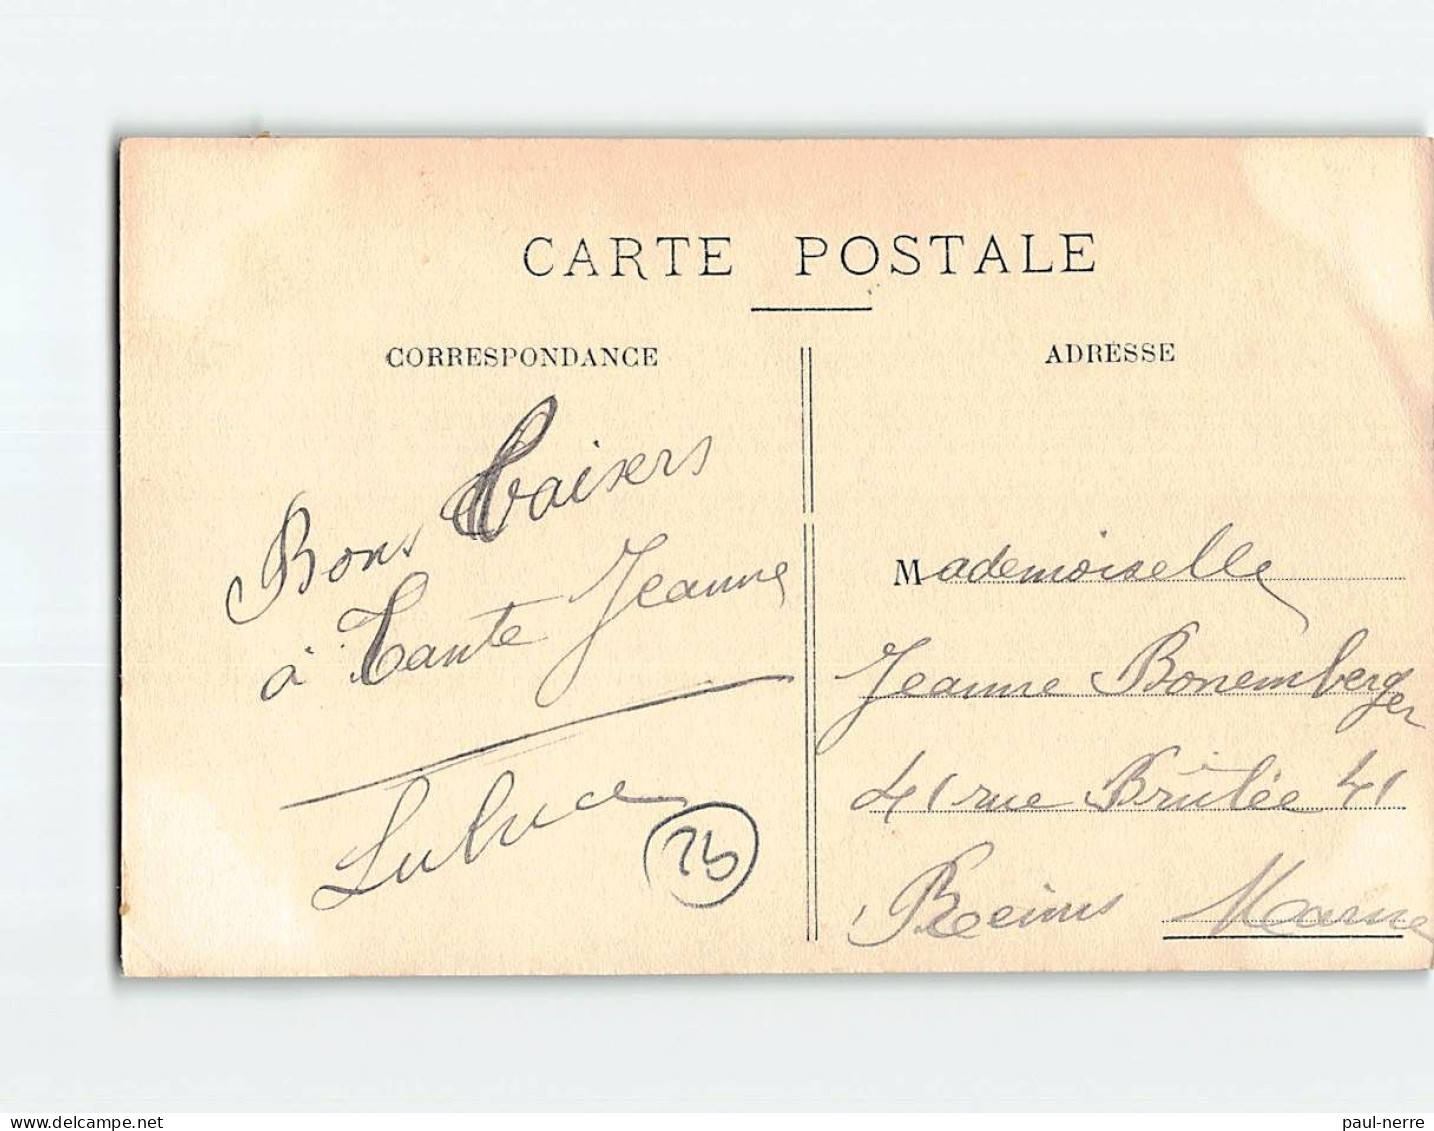 CARTE POSTALE
CORRESPONDANCE
Bons baisers
à Tante Jeanne
ADRESSE
Mademoiselle
Jeanne Bonemberger
41 rue Brûlée 41
Reims Marne
delcampe.net
paul-nerre